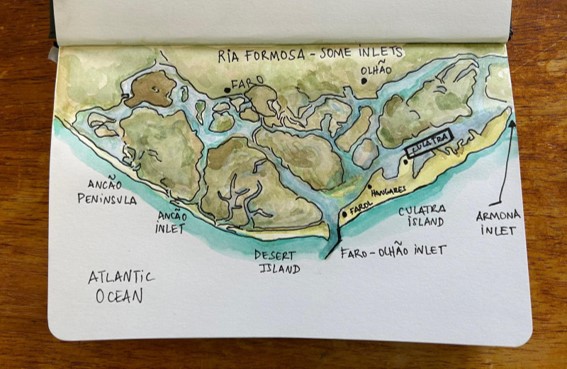 RIA FORMOSA - SOME INLETS
OLHÃO
FARO
CULATRA
HANGARES
FAROL
ANCÃO
PENÍNSULA
ANCÃO
INLET
CULATRA
ISLAND
ARMONA
INLET
FARO-OLHÃO INLET
DESERT
ISLAND
ATLANTIC
OCEAN